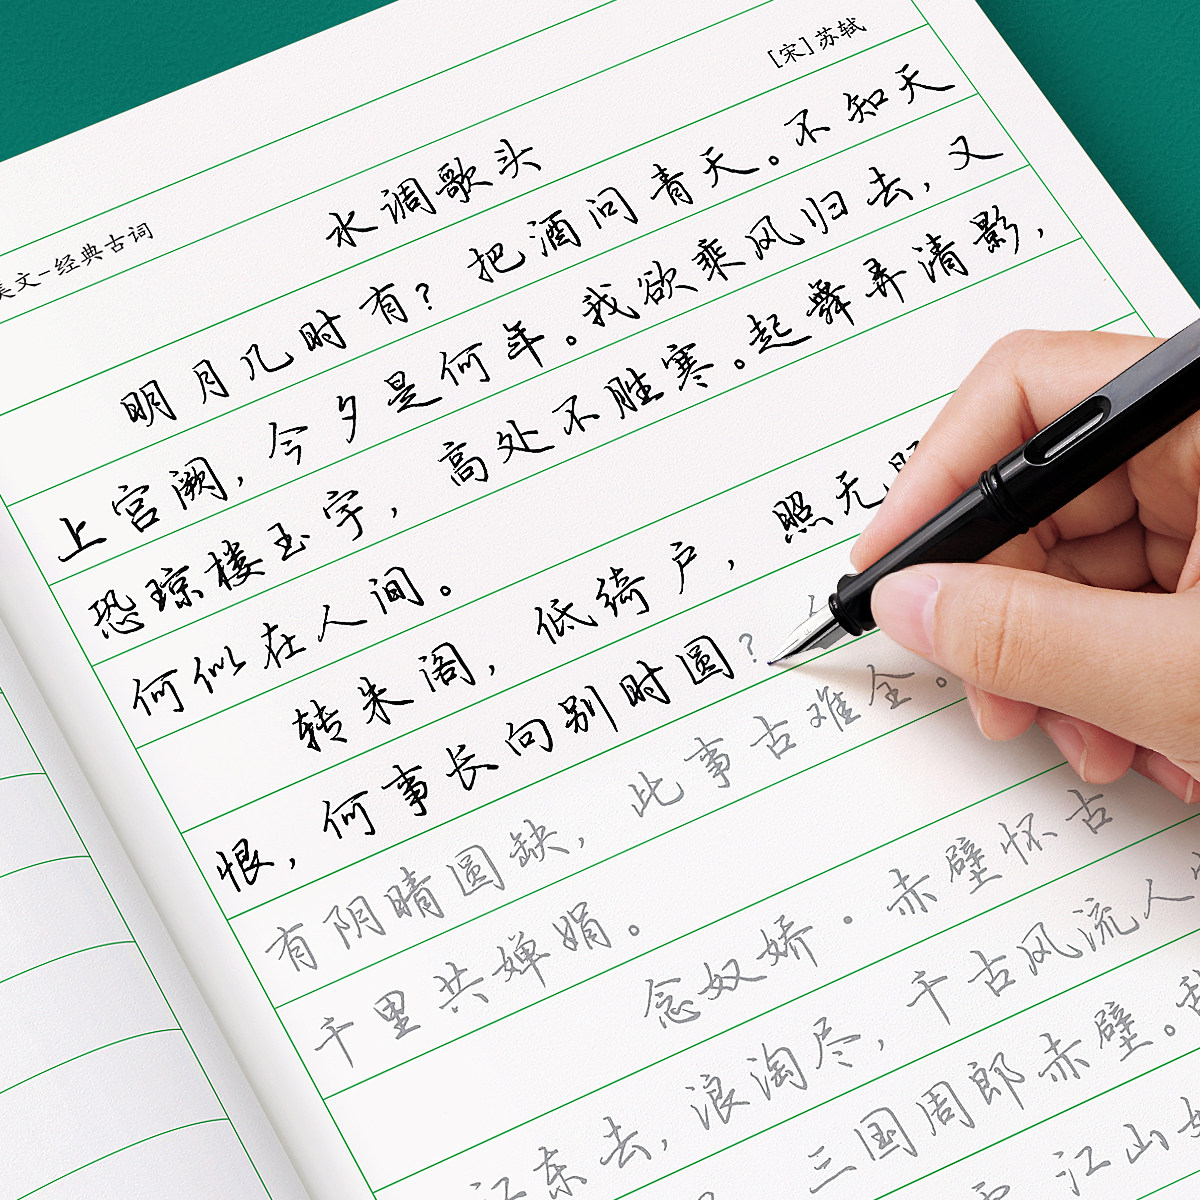 [宋]苏轼
美文-经典古词
水调歌头
明月几时有？把酒问青天。不知天
上宫阙，今夕是何年。我欲乘风归去，又
恐琼楼玉宇，高处不胜寒。起舞弄清影，
何似在人间。
转朱阁，低绮户，照无眠
恨，何事长向别时圆？
有阴晴圆缺，此事古难全。
千里共婵娟。
念奴娇·赤壁怀古
江东去，浪淘尽，千古风流人
三国周郎赤壁。
江山如